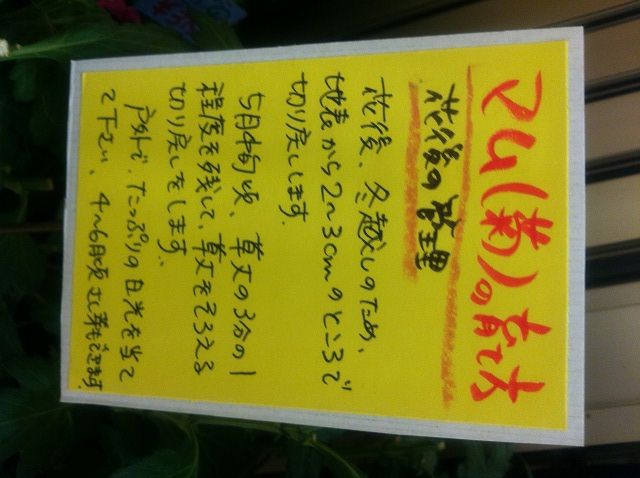 マム(菊)の育て方
花後の管理
花後、冬越しのため、
地表から2〜3cmのところで
切り戻しします.
5月中旬頃、草丈の3分の1
程度を残して、草丈をそろえる
切り戻しをします.
戸外で、たっぷりの日光を当て
て下さい、4〜6月頃さし芽もできます.